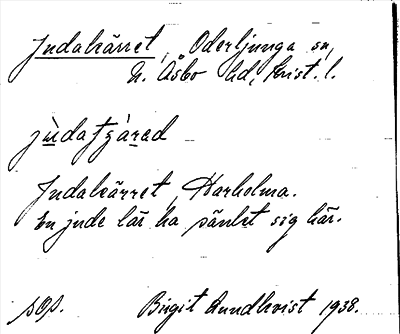 Judakärret, Oderljunga sn,
N. Åsbo hd, Krist. l.
Judakärret, Harholma.
En jude lär ha sänket sig här.
sop. Birgit Lundkvist 1938.